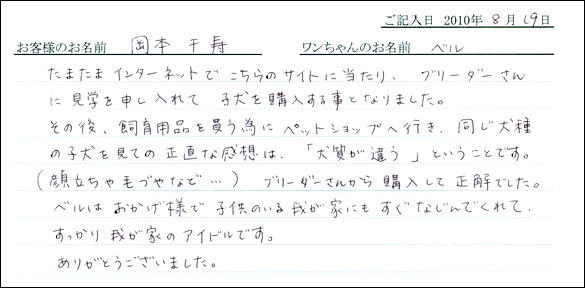 ご記入日 2010年 8月 19日
お客様のお名前 岡本 千寿 ワンちゃんのお名前 ベル
たまたま インターネットで こちらのサイトに当たり、 ブリーダーさん
に 見学を申し入れて 子犬を購入する事となりました。
その後、飼育用品を買う為に ペットショップへ行き、同じ犬種
の子犬を見ての 正直な感想は、「犬質が違う」ということです。
(顔立ちや毛づやなど…) ブリーダーさんから 購入して正解でした。
ベルは おかげ様で 子供のいる我が家にも すぐなじんでくれて、
すっかり 我が家の アイドルです。
ありがとうございました。